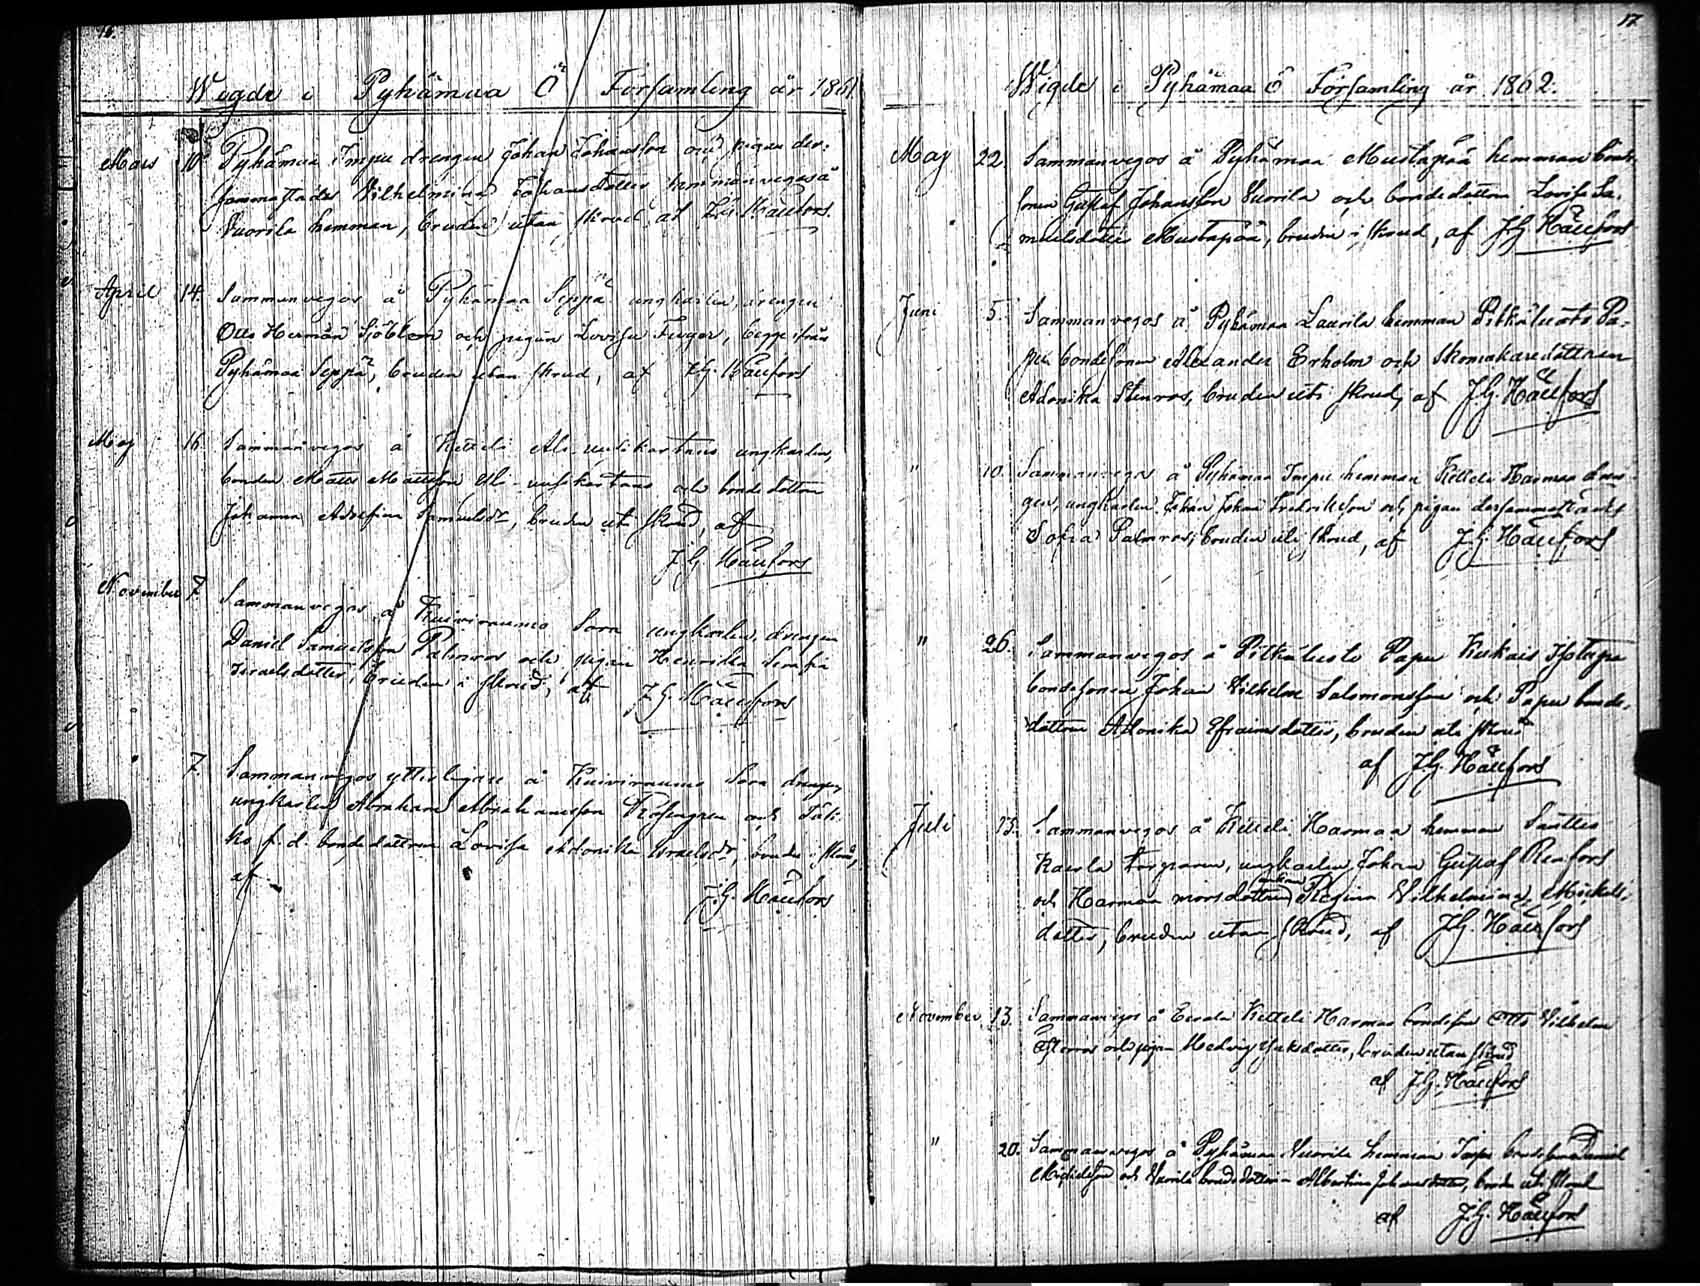 16.
Wigde i Pyhämaa Ö Församling år 1861
Mars 10 Pyhämaa Impu drengen Johan Johansson och pigan der-
sammastädes Vilhelmina Johansdotter sammanvegos å
Vuorila hemman, bruden utan skrud af J.G. Haufors.
April 14. Sammanvegos å Pyhämaa Seppä ungkarlen, drengen
Otto Herman Sjöblom och pigan Lovisa, begge från
Pyhämaa Seppä, bruden utan skrud, af J.G. Haufors
Maj 16. Sammanvegos å Ketteli ungkarlen,
bonden Matts Mattsson och bondedottren
Johanna Adolfina Samuelsdr, bruden uti skrud, af
J.G. Haufors
November 7. Sammanvegos å Kuivirauma Sora ungkarlen, drengen
Daniel Samuelsson Palmros och pigan Henrika Serafia
Israelsdotter, bruden i skrud, af J.G. Haufors
7. Sammanvegos ytterligare å Kuivirauma Sora drengen,
ungkarlen Abraham Abrahamsson Rosengren och
f.d. bondedottren Lovisa Adonika Israelsdr, bruden i skrud,
af
J.G. Haufors
17
Wigde i Pyhämaa Ö Församling år 1862.
Maj 22. Sammanvegos å Pyhämaa Mustapää hemman bonde-
sonen Gustaf Johansson Vuorila och bondedottren Lovisa Sa-
muelsdotter Mustapää, bruden i skrud, af J.G. Haufors
Juni 5. Sammanvegos å Pyhämaa Laurila hemman Pitkäluoto Pa-
pu bondesonen Alexander Erholm och skomakaredottren
Adonika Stenros, bruden uti skrud, af J.G. Haufors
" 10. Sammanvegos å Pyhämaa Impu hemman Ketteli Harmaa dren-
gen, ungkarlen Johan Fredriksson och pigan dersammastädes
Sofia Palmros, bruden uti skrud, af J.G. Haufors
" 26. Sammanvegos å Pitkäluoto Papu Kukais Isotupa
bondesonen Johan Vilhelm Salomonsson och Papu bonde-
dottren Adonika Efraimsdotter, bruden uti skrud
af J.G. Haufors
Juli 13. Sammanvegos å Ketteli Harmaa hemman Santtio
Karola torparen, ungkarlen Johan Gustaf Renfors
och Harmaa morsdottren enkan Regina Vilhelmina Mickels-
dotter, bruden utan skrud, af J.G. Haufors
November 13. Sammanvegos å Ketteli Harmaa bondeson Otto Vilhelm
och pigan Hedvig Isaksdotter, bruden utan skrud
af J.G. Haufors
" 20. Sammanvegos å Pyhämaa Vuorila hemman Impu bondesonen Daniel
och Vuorila bondedottren Albertina Johansdotter, bruden uti skrud
af J.G. Haufors